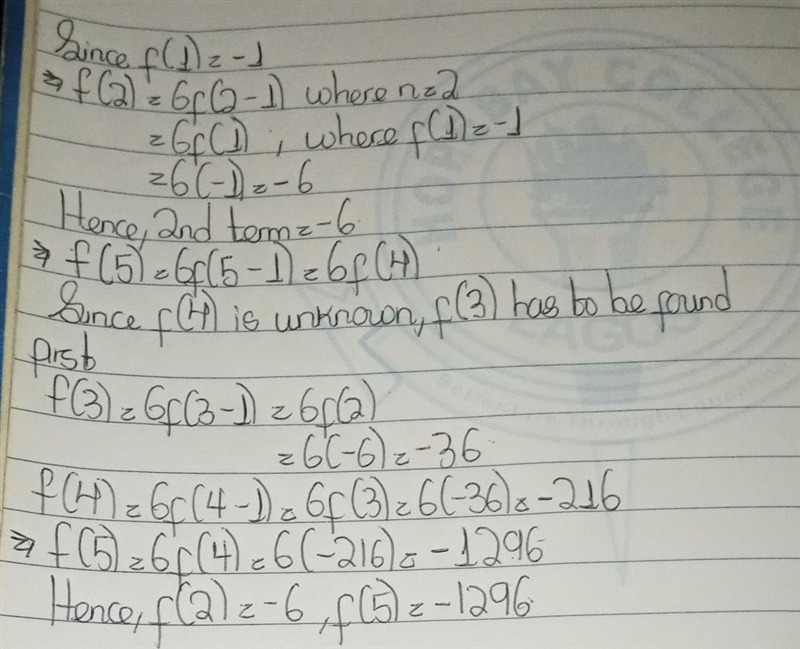 Since f(1) = -1
⇒ f(2) = 6f(2-1) where n=2
= 6f(1), where f(1) = -1
= 6(-1) = -6
Hence, 2nd term = -6.
⇒ f(5) = 6f(5-1) = 6f(4)
Since f(4) is unknown, f(3) has to be found
first
f(3) = 6f(3-1) = 6f(2)
= 6(-6) = -36.
f(4) = 6f(4-1) = 6f(3) = 6(-36) = -216
⇒ f(5) = 6f(4) = 6(-216) = -1296
Hence, f(2) = -6, f(5) = -1296.
BAY COLLEGE
LAGOS